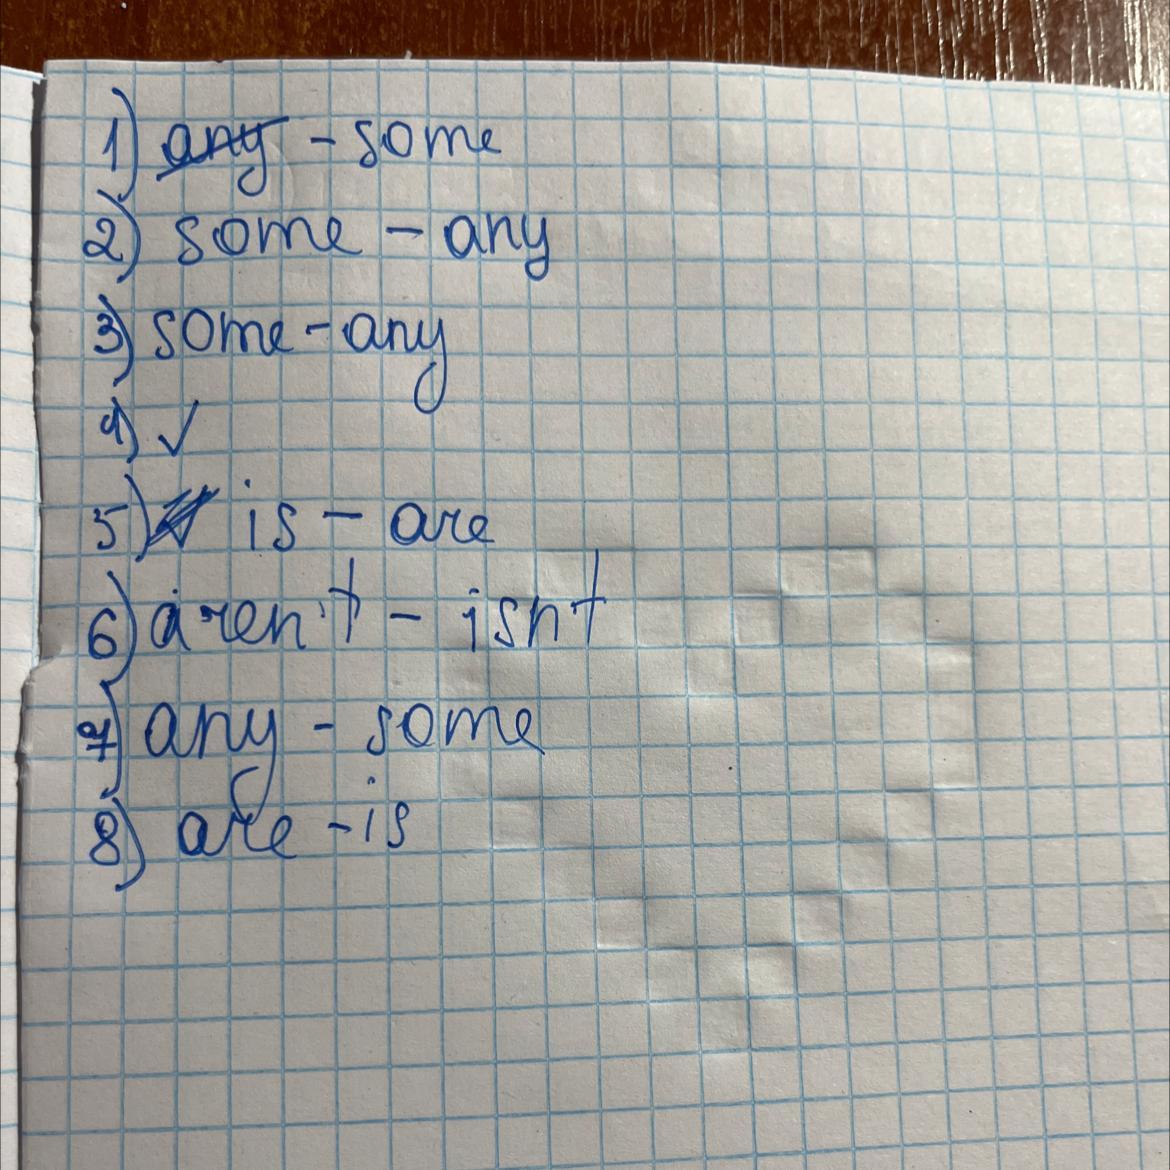 1) any - some
2) some - any
3) some - any
4) ✓
5) is - are
6) aren't - isnt
7) any - some
8) are - is